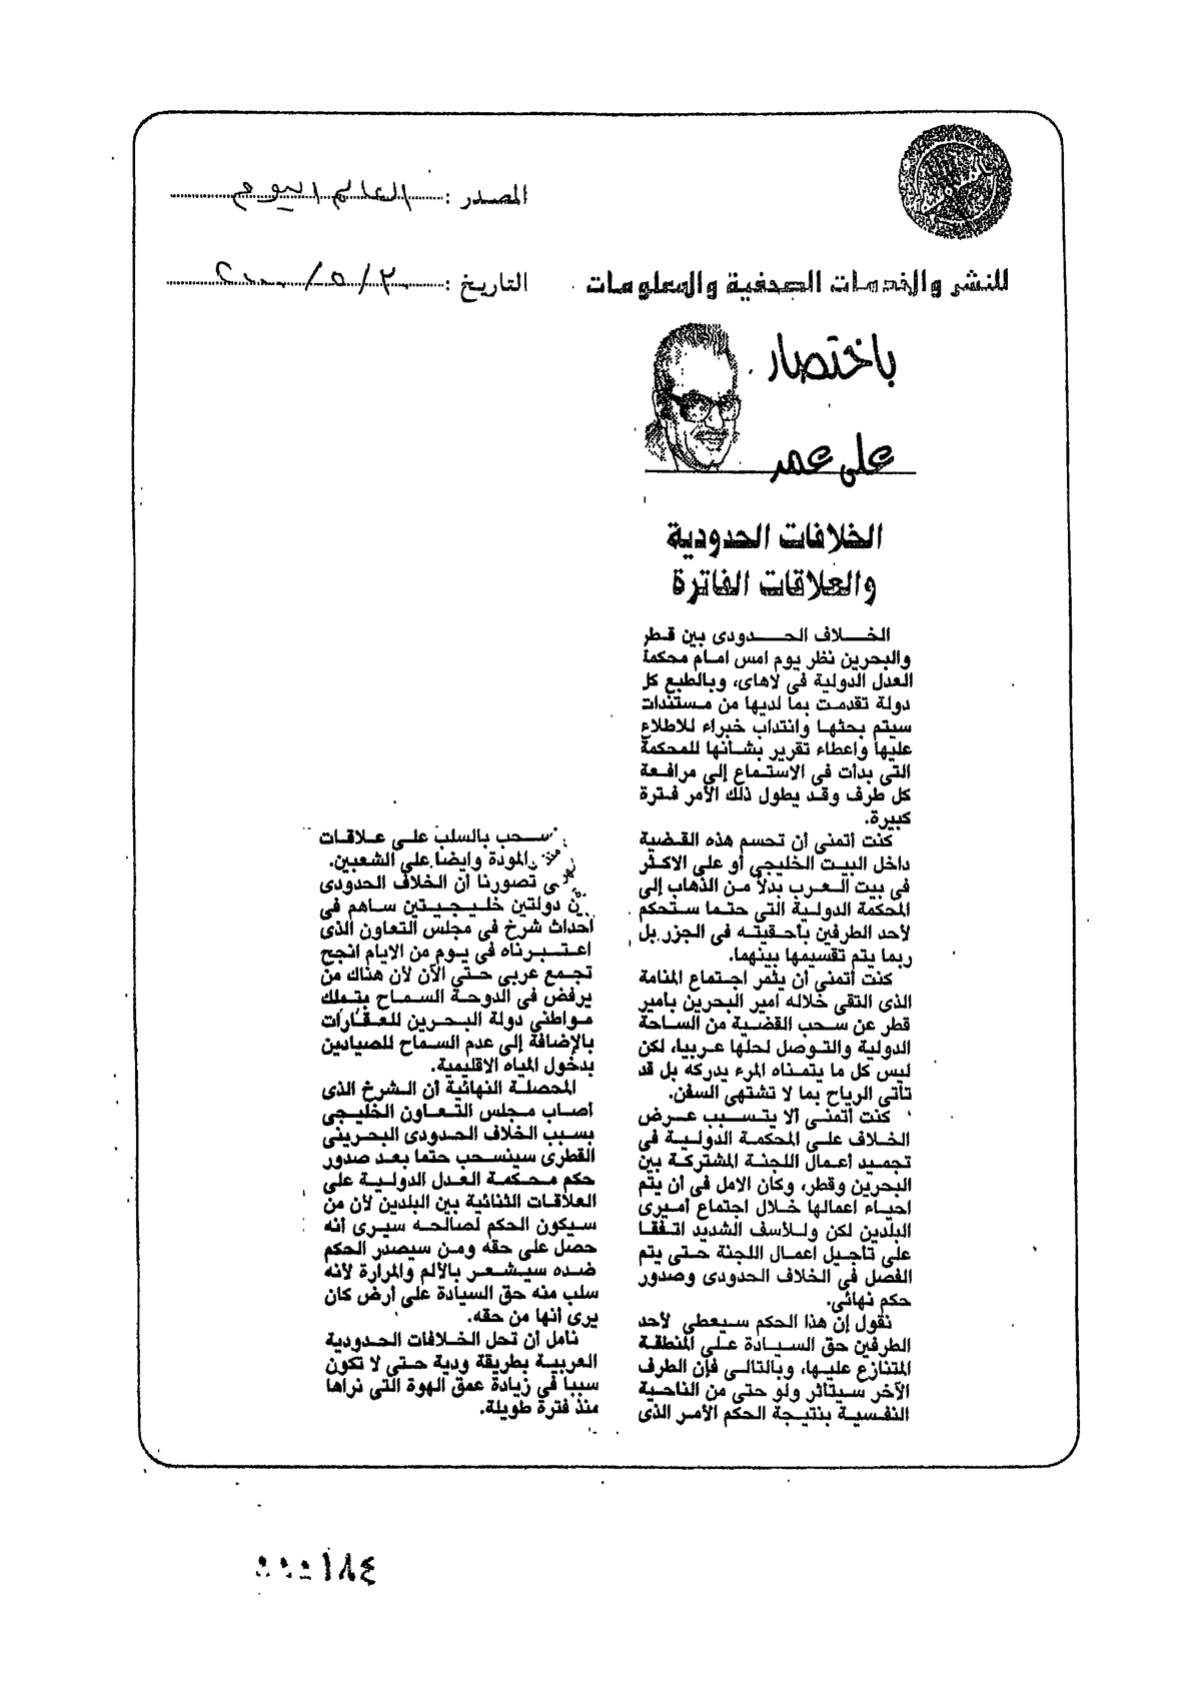 المصدر : العالم اليوم
للنشر والخدمات الصحفية والمعلومات
التاريخ : ٣٠/٥/٢٠٠٠
باختصار
على عمر
الخلافات الحدودية
والعلاقات الفاترة
الخلاف الحدودى بين قطر
والبحرين نظر يوم امس امام محكمة
العدل الدولية فى لاهاى، وبالطبع كل
دولة تقدمت بما لديها من مستندات
سيتم بحثها وانتداب خبراء للاطلاع
عليها واعطاء تقرير بشانها للمحكمة
التى بدأت فى الاستماع إلى مرافعة
كل طرف وقد يطول ذلك الأمر فترة
كبيرة.
كنت أتمنى أن تحسم هذه القضية
داخل البيت الخليجى أو على الاكثر
فى بيت العرب بدلاً من الذهاب إلى
المحكمة الدولية التى حتما ستحكم
لأحد الطرفين بأحقيته فى الجزر بل
ربما يتم تقسيمها بينهما.
كنت أتمنى أن يثمر اجتماع المنامة
الذى التقى خلاله امير البحرين بامير
قطر عن سحب القضية من الساحة
الدولية والتوصل لحلها عربيا، لكن
ليس كل ما يتمناه المرء يدركه بل قد
تأتى الرياح بما لا تشتهى السفن.
كنت أتمنى ألا يتسبب عرض
الخلاف على المحكمة الدولية فى
تجميد أعمال اللجنة المشتركة بين
البحرين وقطر، وكان الامل فى أن يتم
احياء اعمالها خلال اجتماع أميرى
البلدين لكن وللأسف الشديد اتفقا
على تأجيل اعمال اللجنة حتى يتم
الفصل فى الخلاف الحدودى وصدور
حكم نهائى.
نقول إن هذا الحكم سيعطى لأحد
الطرفين حق السيادة على المنطقة
المتنازع عليها، وبالتالى فإن الطرف
الآخر سيتأثر ولو حتى من الناحية
النفسية بنتيجة الحكم الأمر الذى
سحب بالسلب على علاقات
المودة وايضا على الشعبين.
تصورنا أن الخلاف الحدودى
دولتين خليجيتين ساهم فى
احداث شرخ فى مجلس التعاون الذى
اعتبرناه فى يوم من الايام انجح
تجمع عربى حتى الآن لأن هناك من
يرفض فى الدوحة السماح بتملك
مواطنى دولة البحرين للعقارات
بالإضافة إلى عدم السماح للصيادين
بدخول المياه الاقليمية.
المحصلة النهائية أن الشرخ الذى
أصاب مجلس التعاون الخليجى
بسبب الخلاف الحدودى البحرينى
القطرى سينسحب حتما بعد صدور
حكم محكمة العدل الدولية على
العلاقات الثنائية بين البلدين لأن من
سيكون الحكم لصالحه سيرى أنه
حصل على حقه ومن سيصدر الحكم
ضده سيشعر بالألم والمرارة لأنه
سلب منه حق السيادة على أرض كان
يرى أنها من حقه.
نأمل أن تحل الخلافات الحدودية
العربية بطريقة ودية حتى لا تكون
سببا فى زيادة عمق الهوة التى نراها
منذ فترة طويلة.
١٨٤